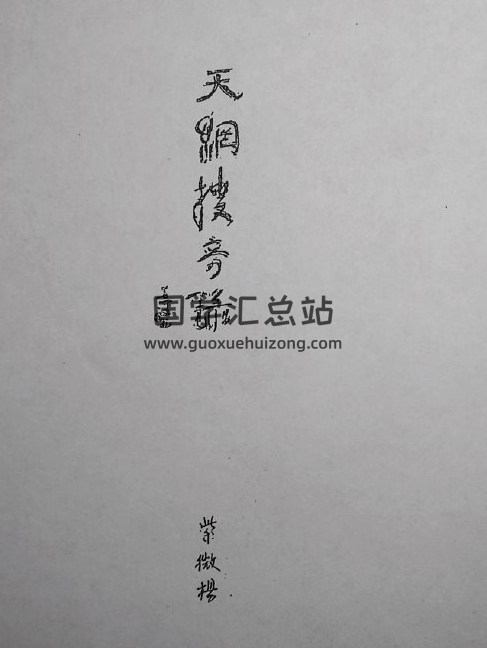 天網搜奇
国学汇总站
www.guoxuehuizong.com
紫微楊